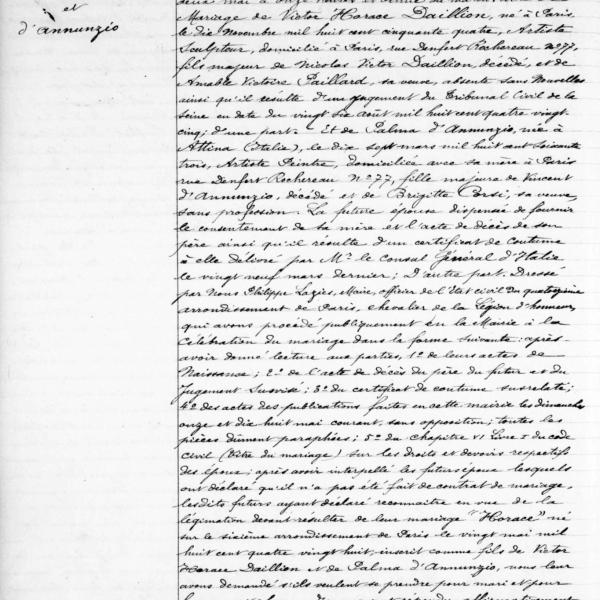 et
d'Annunzio
Mariage de Victor Horace Daillion, né à Paris
le dix Novembre mil huit cent cinquante quatre, Artiste
Sculpteur, domicilié à Paris, rue Denfert Rochereau No 77,
fils majeur de Nicolas Victor Daillion, décédé, et de
Amable Victoire Paillard, sa veuve, absente sans Nouvelles
ainsi qu'il résulte d'un jugement du Tribunal Civil de la
Seine en date du vingt six août mil huit cent quatre vingt-
cinq; d'une part. Et de Palma d'Annunzio, née à
Attina (Italie), le dix sept mars mil huit cent soixante
trois, Artiste Peintre, domiciliée avec sa mère à Paris
rue Denfert Rochereau No 77, fille majeure de Vincent
d'Annunzio, décédé et de Brigitte Corsi, sa veuve,
sans profession. La future épouse dispensée de fournir
le consentement de sa mère et l'acte de décès de son
père ainsi qu'il résulte d'un certificat de coutume
à elle délivré par Mr. le Consul Général d'Italie
le vingt neuf mars dernier; D'autre part. Dressé
par Nous Philippe, Maire, officier de l'Etat civil du quatorzième
arrondissement de Paris, chevalier de la Légion d'honneur,
qui avons procédé publiquement en la Mairie à la
Célébration du mariage dans la forme suivante: après
avoir donné lecture aux parties, 1o de leurs actes de
Naissance; 2o de l'acte de décès du père du futur et du
Jugement Susvisé; 3o du certificat de coutume susrelaté;
4o des actes des publications faites en cette mairie les dimanches
onze et dix huit mai courant, sans opposition; toutes les
pièces dûment paraphées; 5o du chapitre VI Livre I du code
civil (titre du mariage) sur les droits et devoirs respectifs
des époux; après avoir interpellé les futurs époux lesquels
ont déclaré qu'il n'a pas été fait de contrat de mariage,
lesdits futurs ayant déclaré reconnaitre en vue de la
légimation devant résulter de leur mariage "Horace" né
sur le sixième arrondissement de Paris le vingt mai mil
huit cent quatre vingt huit, inscrit comme fils de Victor
Horace Daillion et de Palma d'Annunzio, nous leur
avons demandé s'ils veulent se prendre pour mari et pour